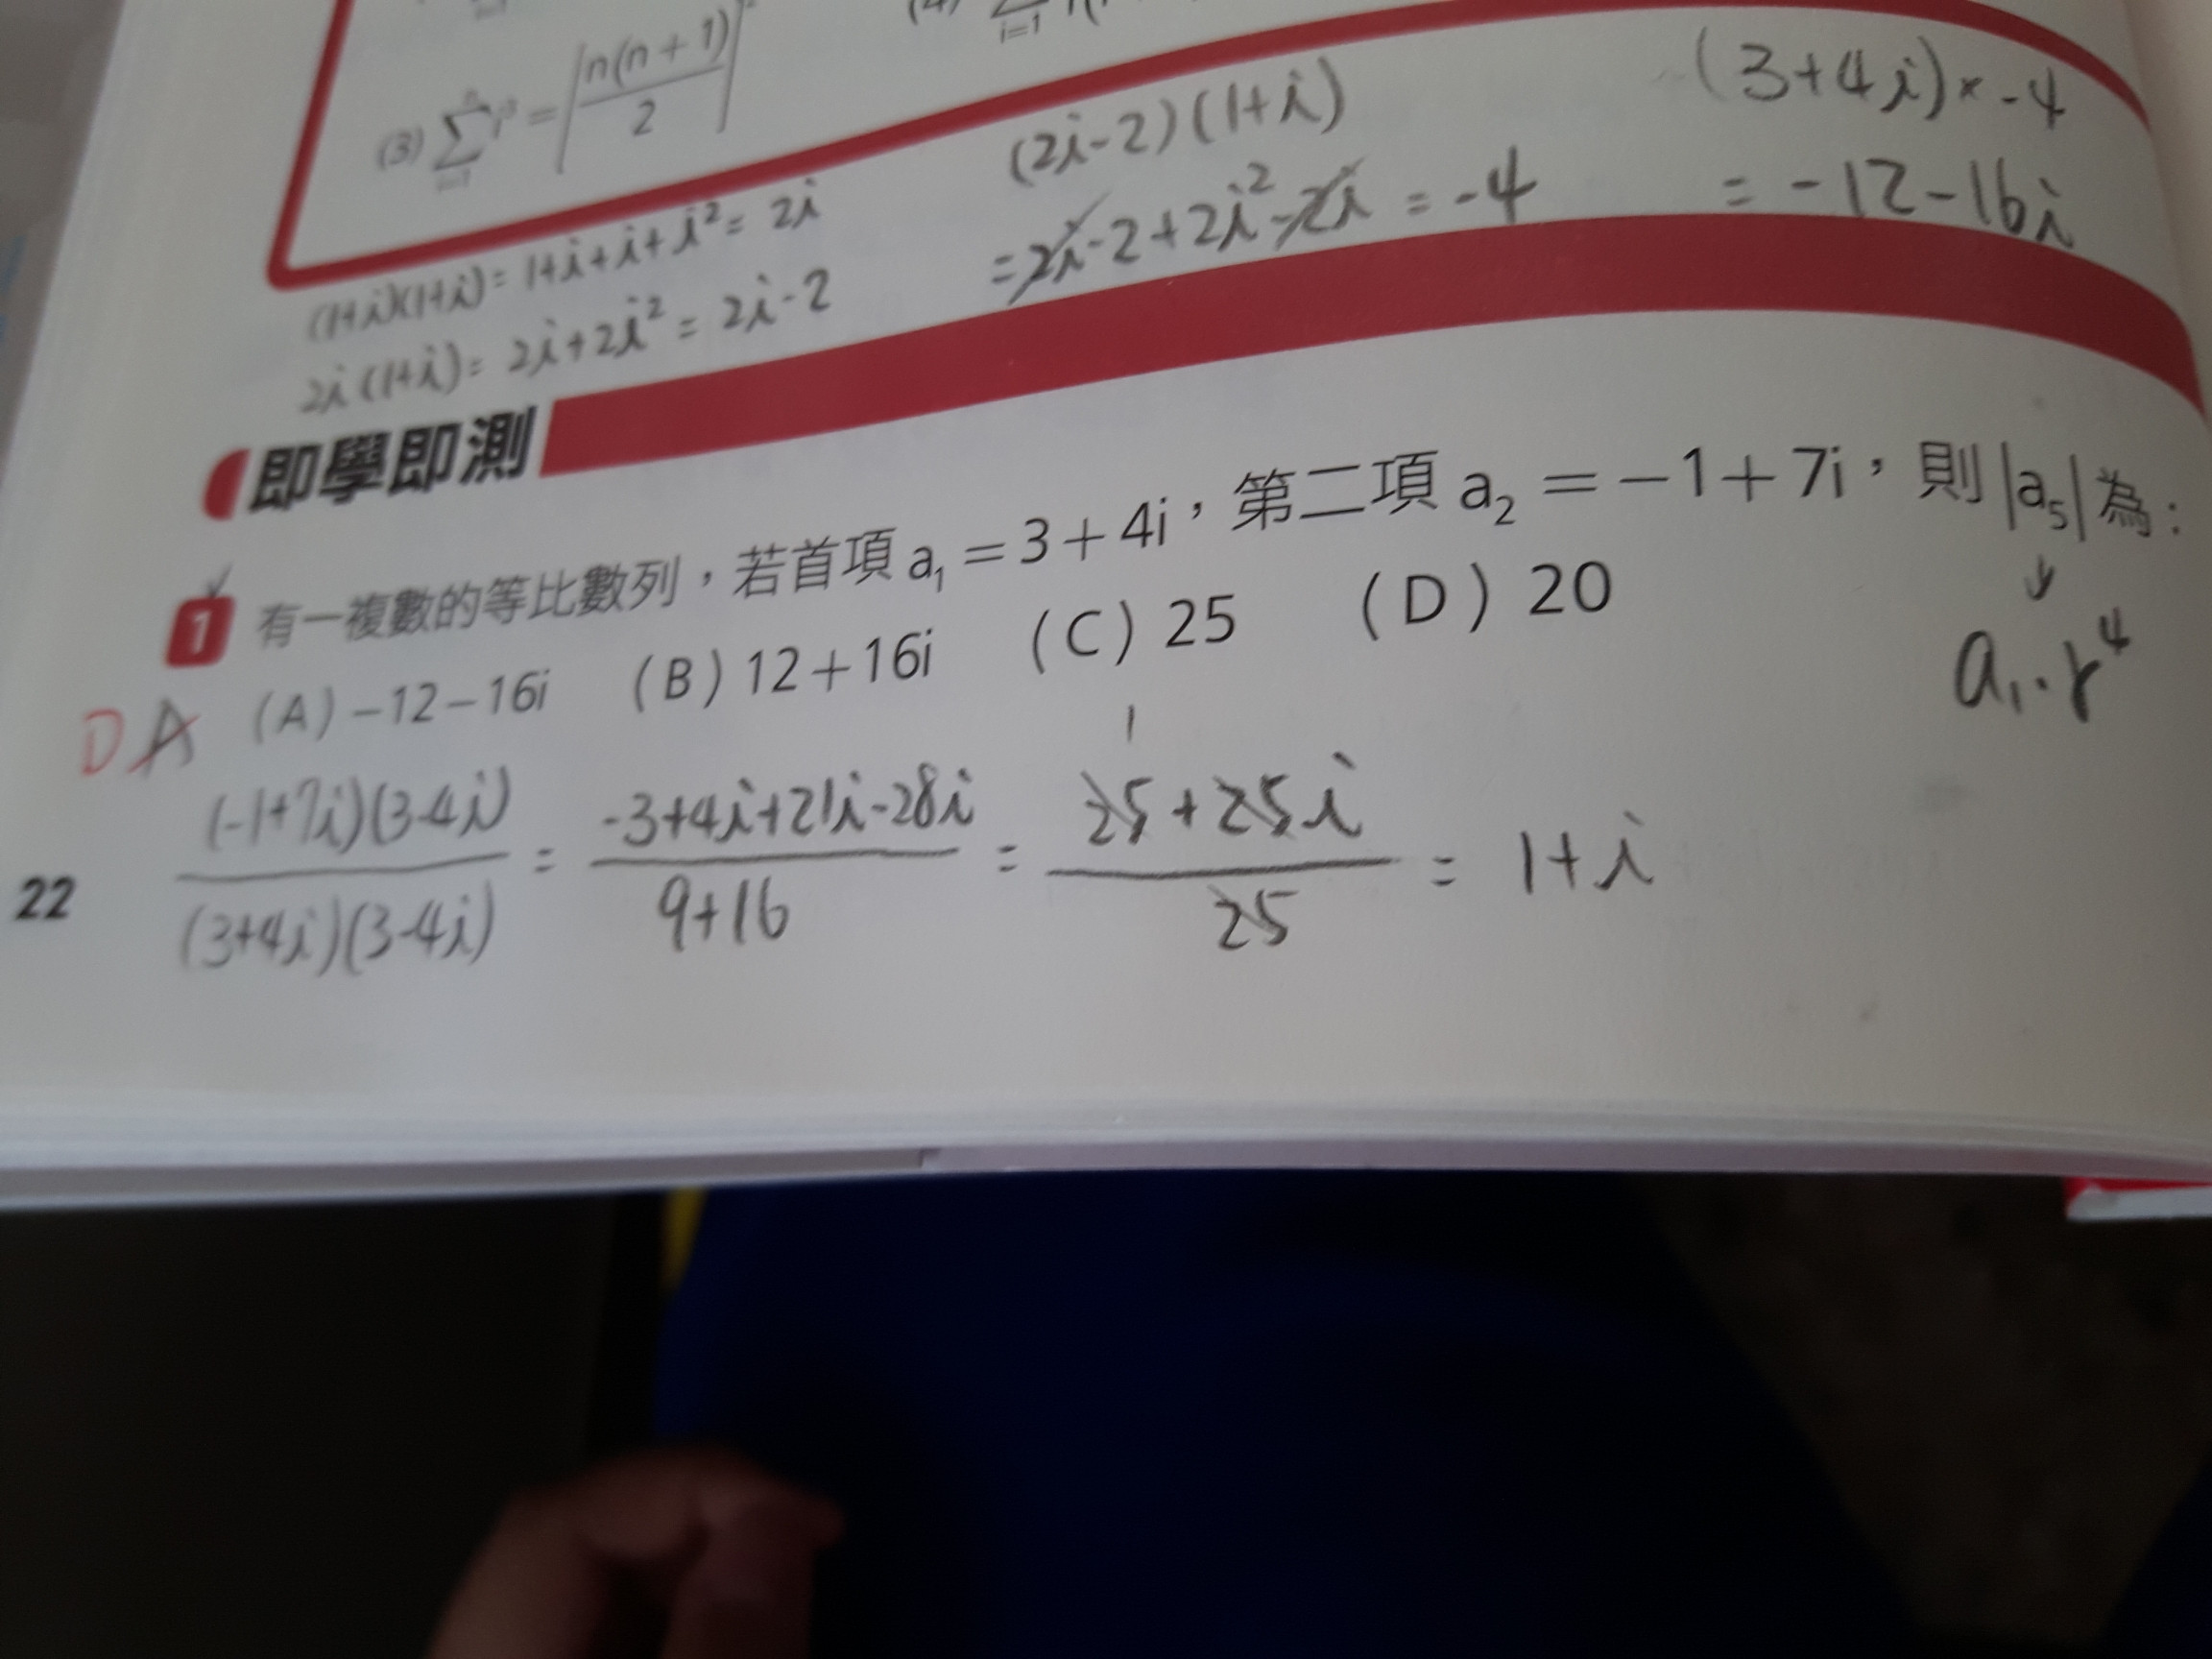 (3) ∑ i³ = [n(n+1)/2]
i=1
(3+4i)×-4
= -12-16i
(2i-2)(1+i)
= 2i-2+2i²-2i = -4
(1+i)(1+i) = 1+i+i+i² = 2i
2i(1+i) = 2i+2i² = 2i-2
即學即測
1 有一複數的等比數列，若首項 a₁ = 3 + 4i，第二項 a₂ = −1 + 7i，則 |a₅| 為：
(A) −12 − 16i (B) 12 + 16i (C) 25 (D) 20
D A
a₁·r⁴
(-1+7i)(3-4i)/(3+4i)(3-4i) = -3+4i+21i-28i/9+16 = 25+25i/25 = 1+i
1
22